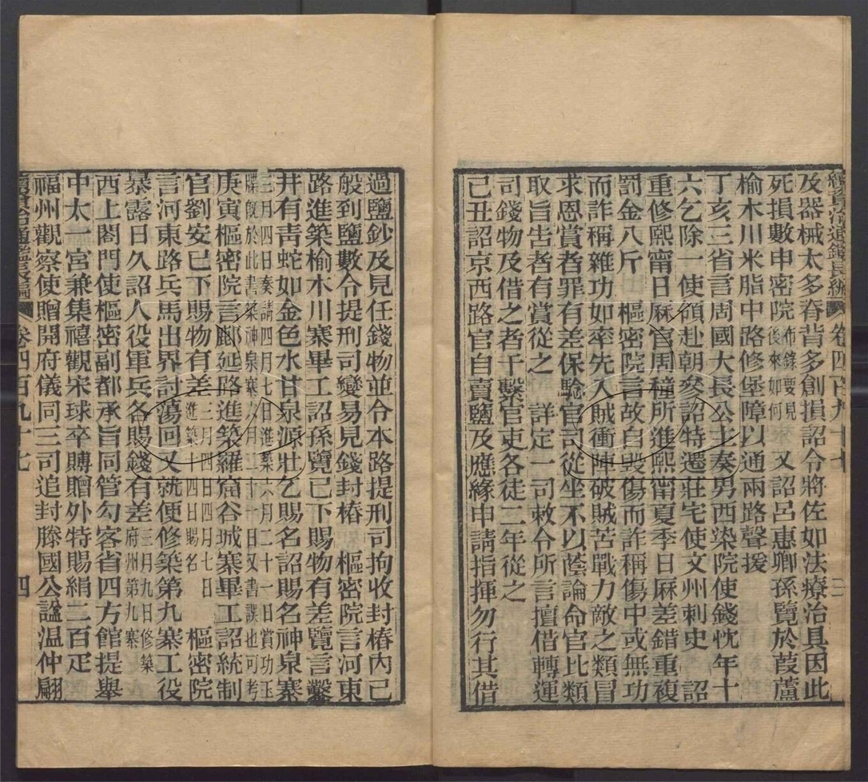 續資治通鑑長編 卷四百九十七
及器械太多脊背多創損詔令將佐如法療治具因此
死損數申密院布錄要見後來如何 又詔呂惠卿孫覽於葭蘆
榆木川米脂中路修堡障以通兩路聲援
丁亥三省言周國大長公主奏男西染院使錢忱年十
六乞除一使額赴朝參詔特遷莊宅使文州刺史 詔
重修熙甯日厤官周穜所進熙甯夏季日厤差錯重複
罰金八斤 樞密院言故自毀傷而詐稱傷中或無功
而詐稱雜功如率先入賊衝陣破賊苦戰力敵之類冒
求恩賞者罪有差保驗官司從坐不以蔭論命官比類
取旨告者有賞從之 詳定一司敕令所言擅借轉運
司錢物及借之者干繫官吏各徒二年從之
己丑詔京西路官自賣鹽及應緣申請指揮勿行其借
過鹽鈔及見任錢物並令本路提刑司拘收封樁內已
般到鹽數令提刑司變易見錢封樁 樞密院言河東
路進築榆木川寨畢工詔孫覽已下賜物有差覽言鑿
井有青蛇如金色水甘泉源壯乞賜名詔賜名神泉寨
三月四日奏請四月七日進築六月二十一日賞功王
牒旣於此書築神泉寨六月二十一日又書誤也可考
庚寅樞密院言鄜延路進築羅窟谷城寨畢工詔統制
官劉安已下賜物有差三月四日四月七日進築 四日賜名 樞密院
言河東路兵馬出界討蕩回又就便修築第九寨工役
暴露日久詔人役軍兵各賜錢有差三月九日修築府州第九寨
西上閤門使樞密副都承旨同管勾客省四方館提舉
中太一宮兼集禧觀宋球卒賻贈外特賜絹二百疋
福州觀察使贈開府儀同三司追封滕國公謚溫仲翩
續資治通鑑長編 卷四百九十七 四